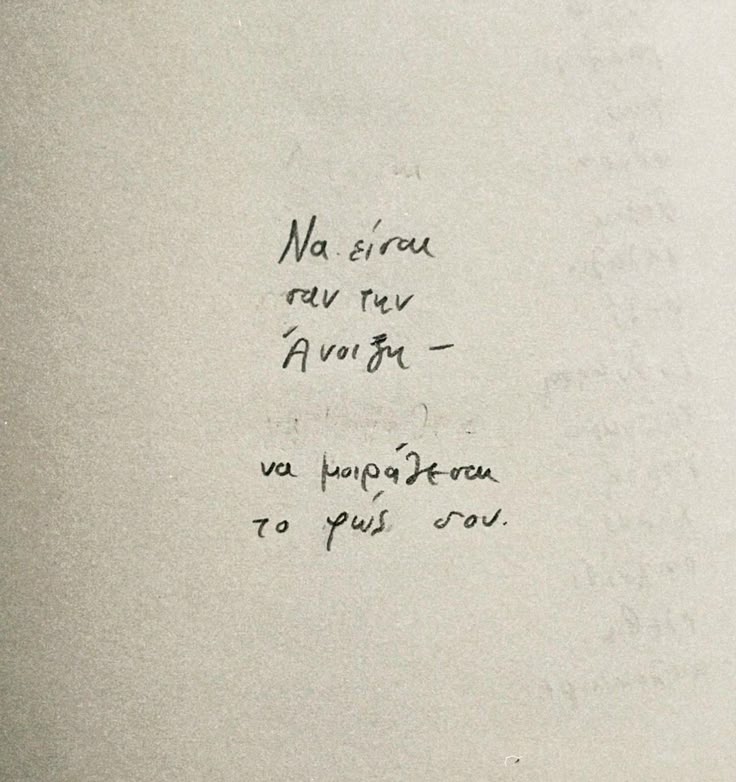 Να είσαι
σαν την
Άνοιξη –
να μοιράζεσαι
το φώς σου.